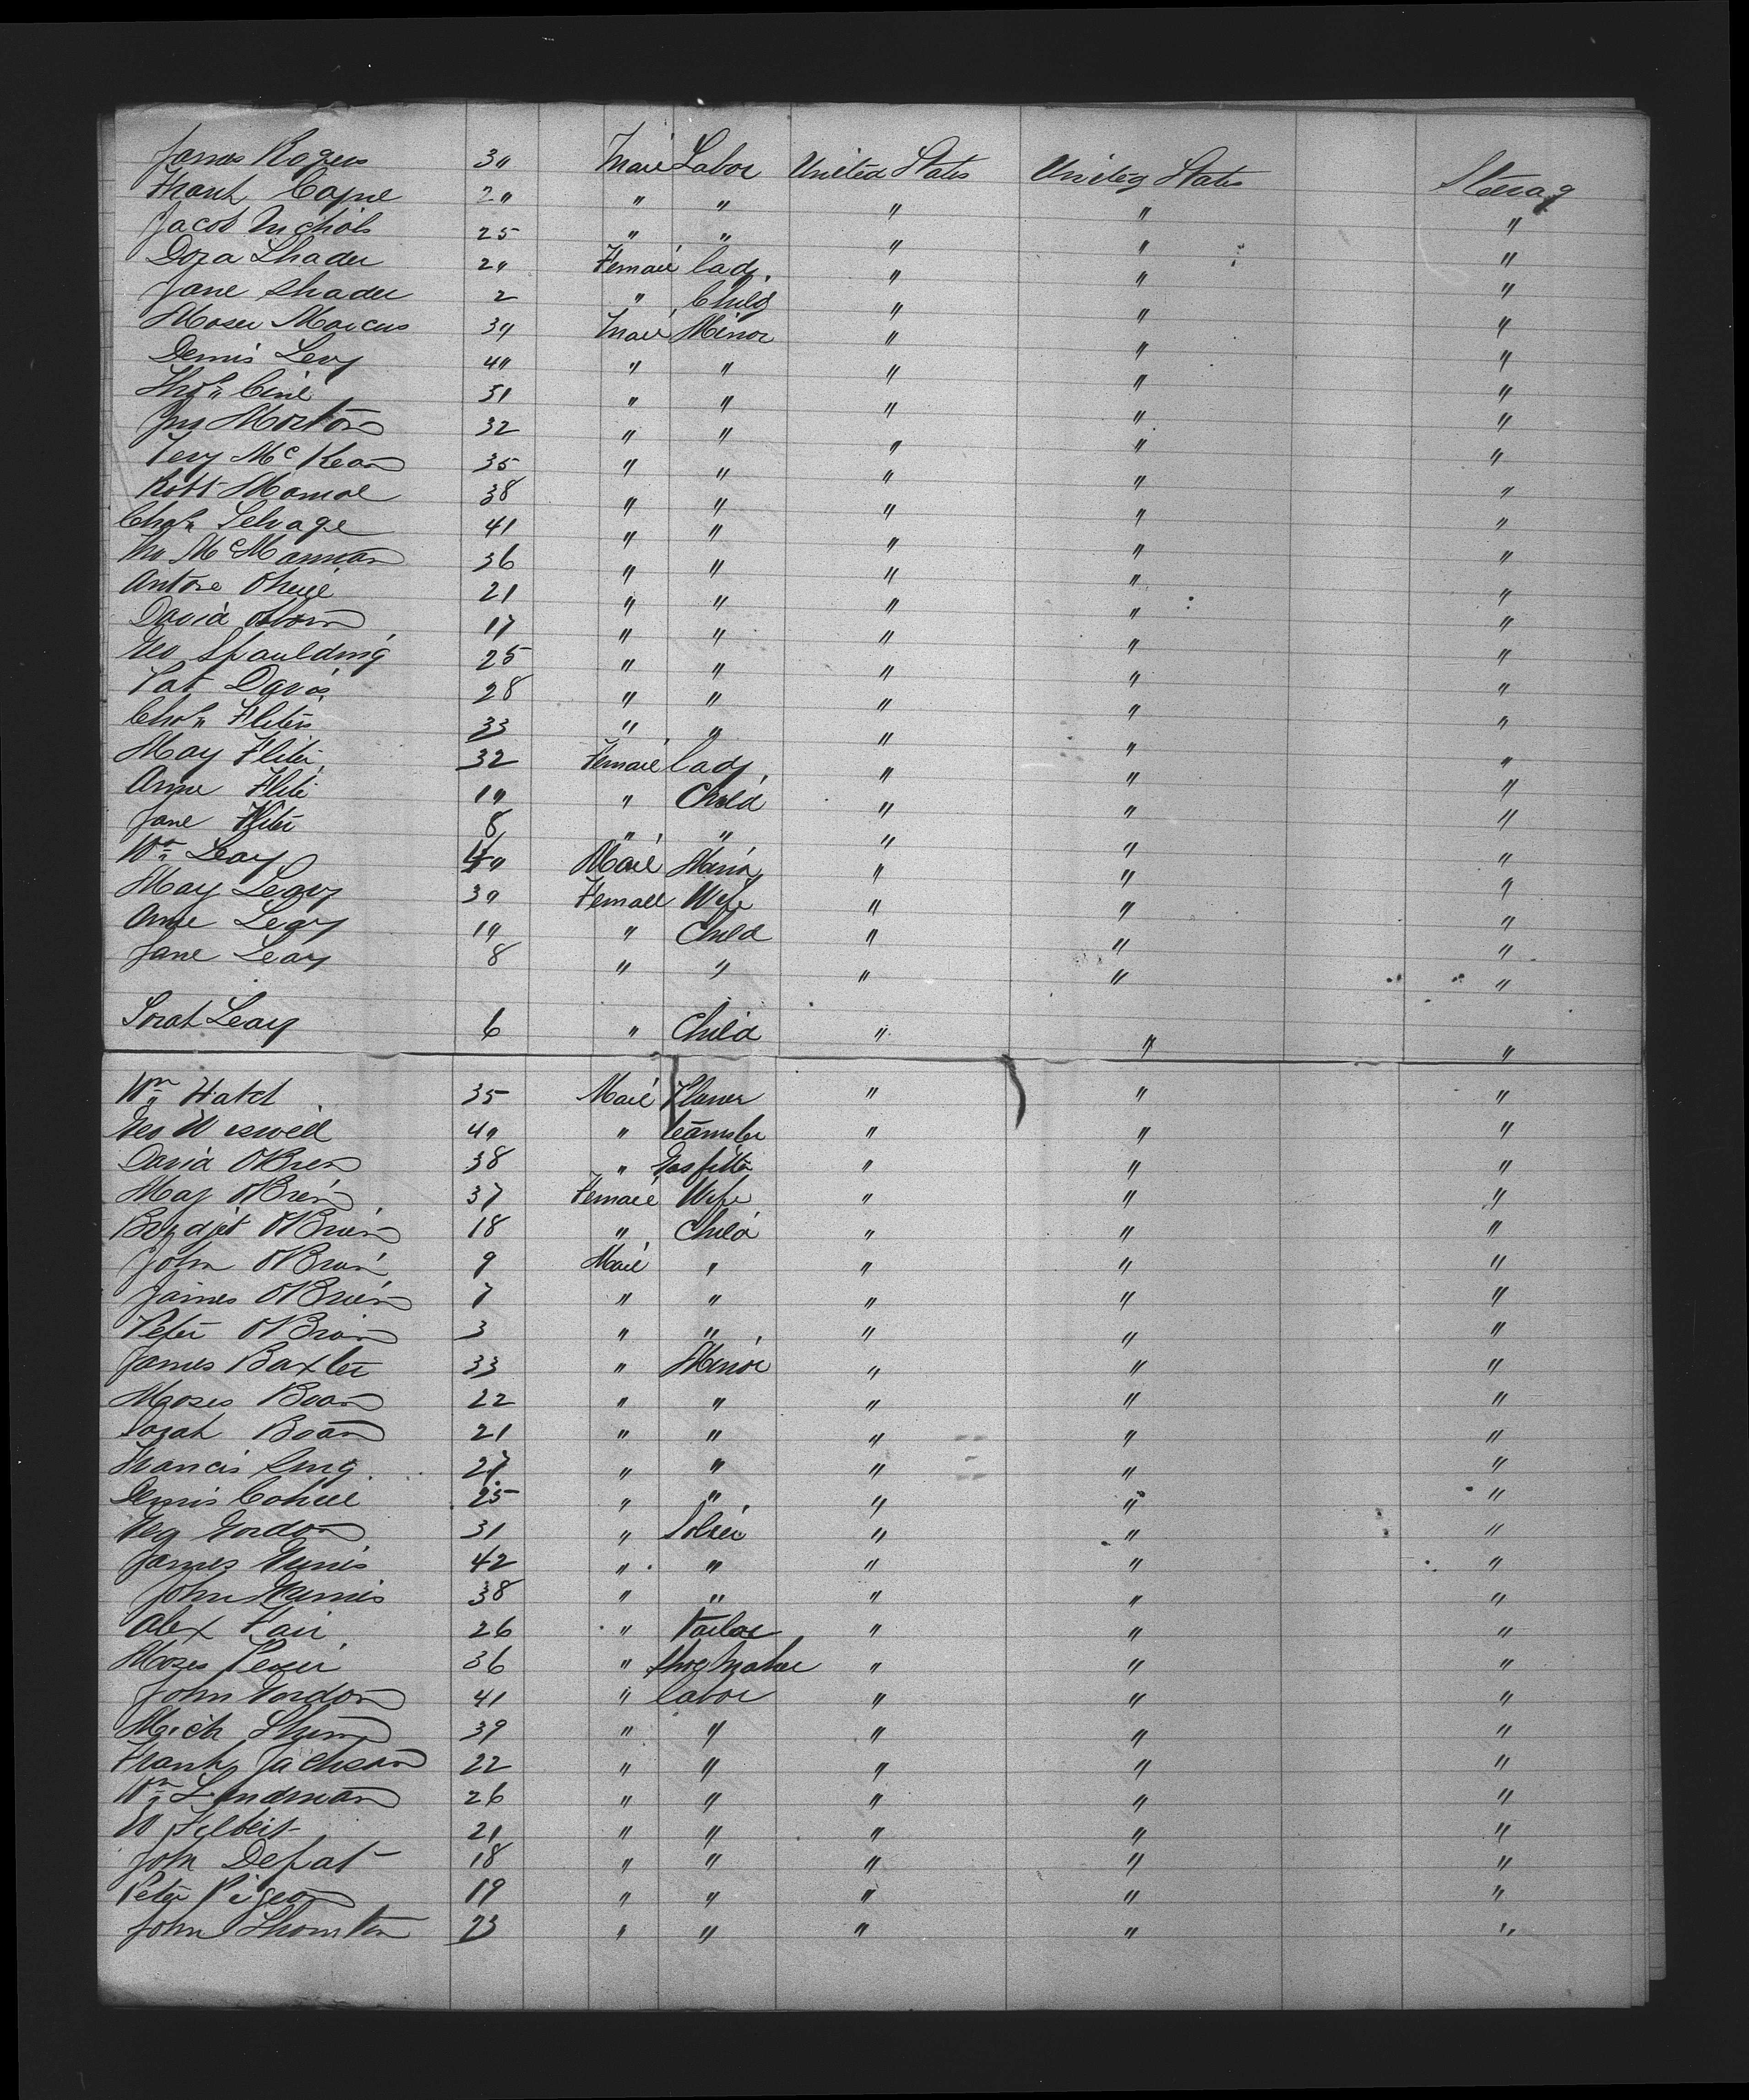 James Rogers 30 Male Labor United States United States Steerag
Frank Cayne 20 " " " " "
Jacob Nichols 25 " " " " "
Dora Shader 20 Female lady " " "
Jane Shader 2 " Child " " "
Moses Marcus 30 Male Minor " " "
Dennis Levy 40 " " " " "
31 " " " " "
Jno Morton 32 " " " " "
Terry McKean 35 " " " " "
Robt 38 " " " " "
Chas Selvage 41 " " " " "
McMannan 36 " " " " "
Antone 21 " " " " "
David Osborn 17 " " " " "
Geo Spaulding 25 " " " " "
Pat Davis 28 " " " " "
Chas 33 " " " " "
May Fliter 32 Female lady " " "
Anne 10 " Child " " "
Jane 8 " " " " "
Wm Leary 40 Male " " "
May Leary 30 Female Wife " " "
Anne Leary 10 " Child " " "
Jane Leary 8 " " " " "
Sarah Leary 6 " Child " " "
Wm Hatch 35 Male " " "
Geo Wiswell 40 " teamster " " "
David OBrien 38 " Gasfitter " " "
May OBrien 37 Female Wife " " "
Brydjet OBrien 18 " Child " " "
John OBrien 9 Male " " " "
James OBrien 7 " " " " "
Peter OBrien 3 " " " " "
James Baxter 33 " Minor " " "
Moses Boan 22 " " " " "
Sarah Boan 21 " " " " "
Francis King 27 " " " " "
Dennis Cohill 25 " " " " "
Gordon 31 " " " "
James Gunnis 42 " " " " "
John Gunnis 38 " " " " "
Alex Fair 26 " Tailor " " "
Moses 36 " Shoemaker " " "
John Gordon 41 " labor " " "
Mich 39 " " " " "
Frank Jackson 22 " " " " "
Wm Lindman 26 " " " " "
W Filbert 21 " " " " "
John Defat 18 " " " " "
Peter Pigeon 19 " " " " "
John Thornton 23 " " " " "